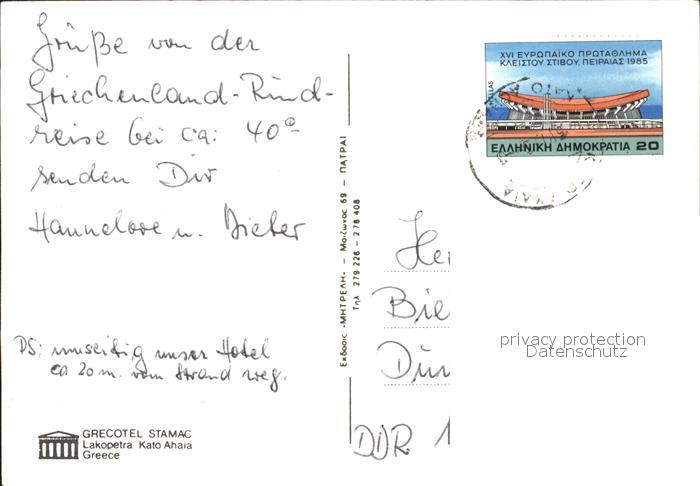 Grüße von der
Griechenland-Rund-
reise bei ca: 40°
senden Dir
Hannelore u. Dieter
PS: umseitig unser Hotel
ca 20 m. vom Strand weg.
GRECOTEL STAMAC
Lakopetra Kato Ahaia
Greece
Εκδοσις «ΜΗΤΡΕΛΗ» — Μαιζωνος 69 — ΠΑΤΡΑΙ
Τηλ 279 226 - 278 408
XVI ΕΥΡΩΠΑΪΚΟ ΠΡΩΤΑΘΛΗΜΑ
ΚΛΕΙΣΤΟΥ ΣΤΙΒΟΥ, ΠΕΙΡΑΙΑΣ 1985
HELLAS
ΕΛΛΗΝΙΚΗ ΔΗΜΟΚΡΑΤΙΑ 20
Her
Bie
DDR 1
privacy protection
Datenschutz